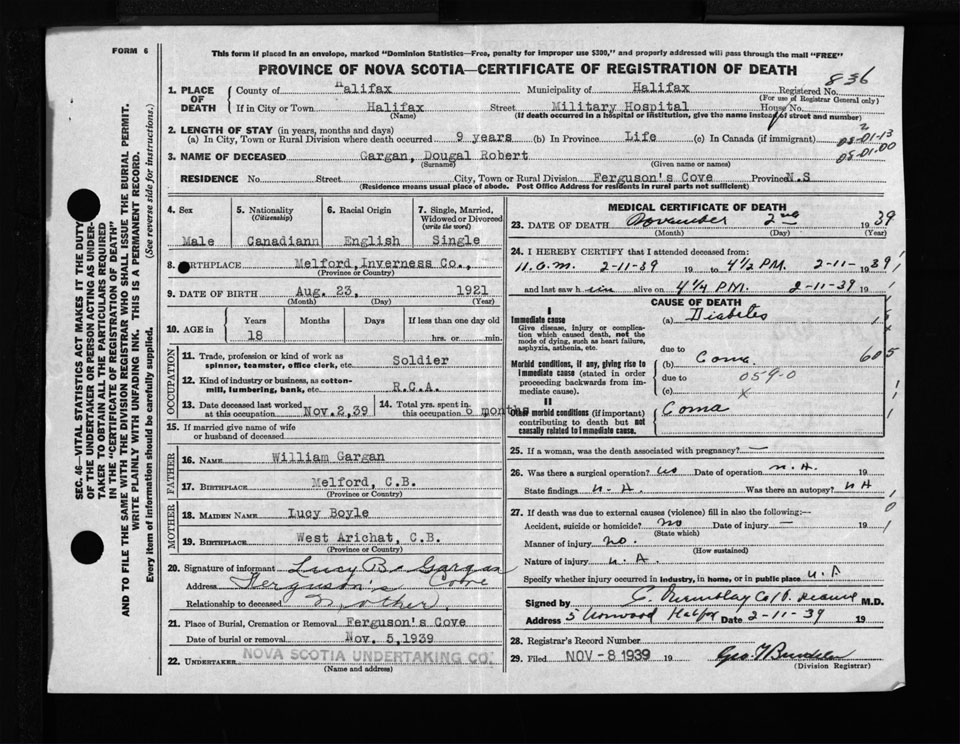 FORM 6
This form if placed in an envelope, marked "Dominion Statistics—Free, penalty for improper use $300," and properly addressed will pass through the mail "FREE"
PROVINCE OF NOVA SCOTIA—CERTIFICATE OF REGISTRATION OF DEATH
836
1. PLACE OF DEATH County of Halifax Municipality of Halifax Registered No.
(For use of Registrar General only)
If in City or Town Halifax Street Military Hospital House No.
(Name) (If death occurred in a hospital or institution, give the name instead of street and number)
2. LENGTH OF STAY (in years, months and days)
(a) In City, Town or Rural Division where death occurred 9 years (b) In Province Life (c) In Canada (if immigrant)
08-01-13
08-01.00
3. NAME OF DECEASED Gargan, Dougal Robert
(Surname) (Given name or names)
RESIDENCE No. Street City, Town or Rural Division Ferguson's Cove Province N.S
(Residence means usual place of abode. Post Office Address for residents in rural parts not sufficient)
SEC. 46—VITAL STATISTICS ACT MAKES IT THE DUTY
OF THE UNDERTAKER OR PERSON ACTING AS UNDER-
TAKER TO OBTAIN ALL THE PARTICULARS REQUIRED
IN THE "CERTIFICATE OF REGISTRATION OF DEATH"
AND TO FILE THE SAME WITH THE DIVISION REGISTRAR WHO SHALL ISSUE THE BURIAL PERMIT.
WRITE PLAINLY WITH UNFADING INK. THIS IS A PERMANENT RECORD.
Every item of information should be carefully supplied. (See reverse side for instructions.)
4. Sex 5. Nationality (Citizenship) 6. Racial Origin 7. Single, Married, Widowed or Divorced (write the word)
Male Canadiann English Single
8. BIRTHPLACE Melford, Inverness Co.,
(Province or Country)
9. DATE OF BIRTH Aug. 23, 1921
(Month) (Day) (Year)
10. AGE in Years Months Days If less than one day old
18 hrs. or min.
OCCUPATION
11. Trade, profession or kind of work as
spinner, teamster, office clerk, etc. Soldier
12. Kind of industry or business, as cotton-
mill, lumbering, bank, etc. R.C.A.
13. Date deceased last worked at this occupation Nov. 2, 39 14. Total yrs. spent in this occupation 6 months
15. If married give name of wife
or husband of deceased
FATHER
16. NAME William Gargan
17. BIRTHPLACE Melford, C.B.
(Province or Country)
MOTHER
18. MAIDEN NAME Lucy Boyle
19. BIRTHPLACE West Arichat, C.B.
(Province or Country)
20. Signature of informant Lucy B. Gargan
Address Ferguson's Cove
Relationship to deceased Mother.
21. Place of Burial, Cremation or Removal Ferguson's Cove
Date of burial or removal Nov. 5, 1939
22. UNDERTAKER NOVA SCOTIA UNDERTAKING CO.
(Name and address)
MEDICAL CERTIFICATE OF DEATH
23. DATE OF DEATH November 2nd 1939
(Month) (Day) (Year)
24. I HEREBY CERTIFY that I attended deceased from:
11.0.m. 2-11-39 19 to 4½ P.M. 2-11-1939
and last saw him alive on 4¼ P.M. 2-11-39 19
CAUSE OF DEATH
I
Immediate cause (a) Diabetes
Give disease, injury or complication which caused death, not the mode of dying, such as heart failure, asphyxia, asthenia, etc.
due to
Morbid conditions, if any, giving rise to immediate cause (stated in order proceeding backwards from immediate cause).
(b) Coma 605
due to 059-0
(c) x
II
Other morbid conditions (if important) contributing to death but not causally related to immediate cause. Coma
25. If a woman, was the death associated with pregnancy? —
26. Was there a surgical operation? no Date of operation n.A. 19
State findings n.A. Was there an autopsy? n A
27. If death was due to external causes (violence) fill in also the following:—
Accident, suicide or homicide? no Date of injury — 19
(State which)
Manner of injury no.
(How sustained)
Nature of injury n.A.
Specify whether injury occurred in industry, in home, or in public place n.A
Signed by M.D.
Address Halifax Date 2-11-39 19
28. Registrar's Record Number
29. Filed NOV - 8 1939 19
(Division Registrar)